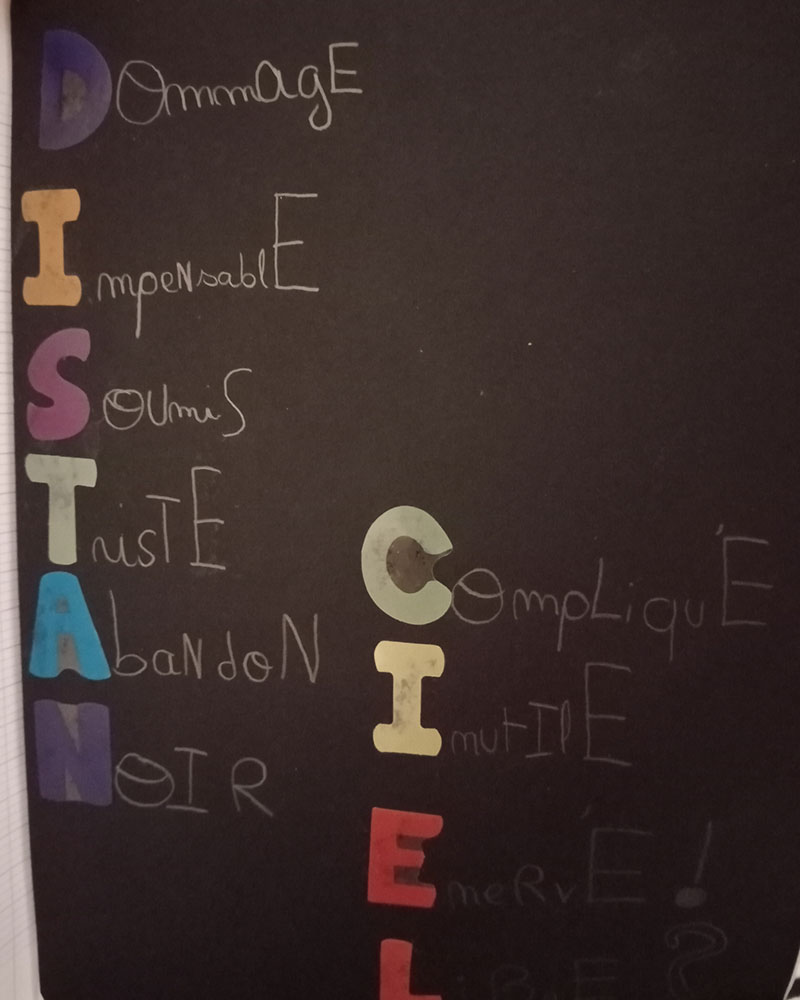 DOmmAgE
ImpeNsablE
SOUmiS
TrisTE
AbaNdoN
NOIR
COmpLiquÉ
InutIlE
EneRvÉ !
LiBrE ?